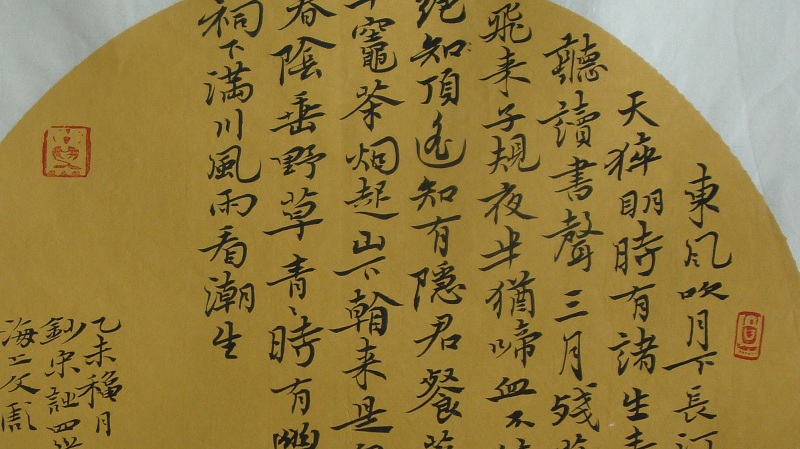 東風吹月下長
天明時有諸生
聽讀書聲三月殘
飛来子規夜半猶啼血不
絕知頂遙知有隱君餐
竈茶烟起山下翰来是
春陰垂野草青々時有幽
祠下滿川風雨看潮生
乙未穐月
鈔宋詩四
海上文